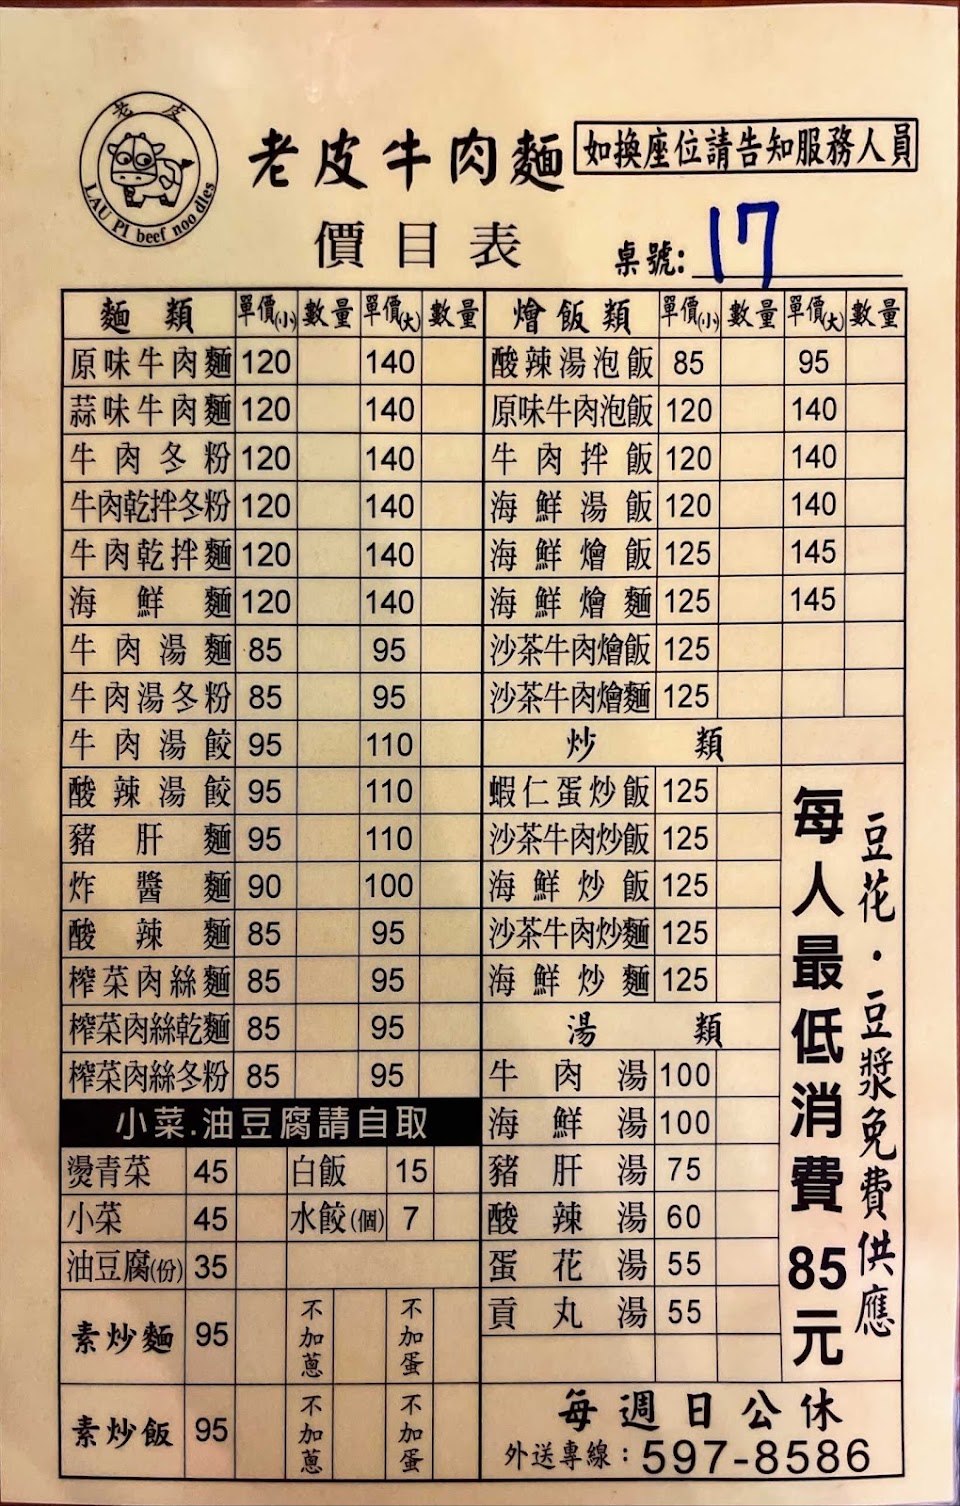 老皮
LAU PI beef noodles
老皮牛肉麵
如換座位請告知服務人員
價目表
桌號: 17
麵類 單價(小) 數量 單價(大) 數量
原味牛肉麵 120 140
蒜味牛肉麵 120 140
牛肉冬粉 120 140
牛肉乾拌冬粉 120 140
牛肉乾拌麵 120 140
海鮮麵 120 140
牛肉湯麵 85 95
牛肉湯冬粉 85 95
牛肉湯餃 95 110
酸辣湯餃 95 110
豬肝麵 95 110
炸醬麵 90 100
酸辣麵 85 95
榨菜肉絲麵 85 95
榨菜肉絲乾麵 85 95
榨菜肉絲冬粉 85 95
小菜.油豆腐請自取
燙青菜 45 白飯 15
小菜 45 水餃(個) 7
油豆腐(份) 35
素炒麵 95 不加蔥 不加蛋
素炒飯 95 不加蔥 不加蛋
燴飯類 單價(小) 數量 單價(大) 數量
酸辣湯泡飯 85 95
原味牛肉泡飯 120 140
牛肉拌飯 120 140
海鮮湯飯 120 140
海鮮燴飯 125 145
海鮮燴麵 125 145
沙茶牛肉燴飯 125
沙茶牛肉燴麵 125
炒類
蝦仁蛋炒飯 125
沙茶牛肉炒飯 125
海鮮炒飯 125
沙茶牛肉炒麵 125
海鮮炒麵 125
湯類
牛肉湯 100
海鮮湯 100
豬肝湯 75
酸辣湯 60
蛋花湯 55
貢丸湯 55
豆花·豆漿免費供應
每人最低消費85元
每週日公休
外送專線：597-8586